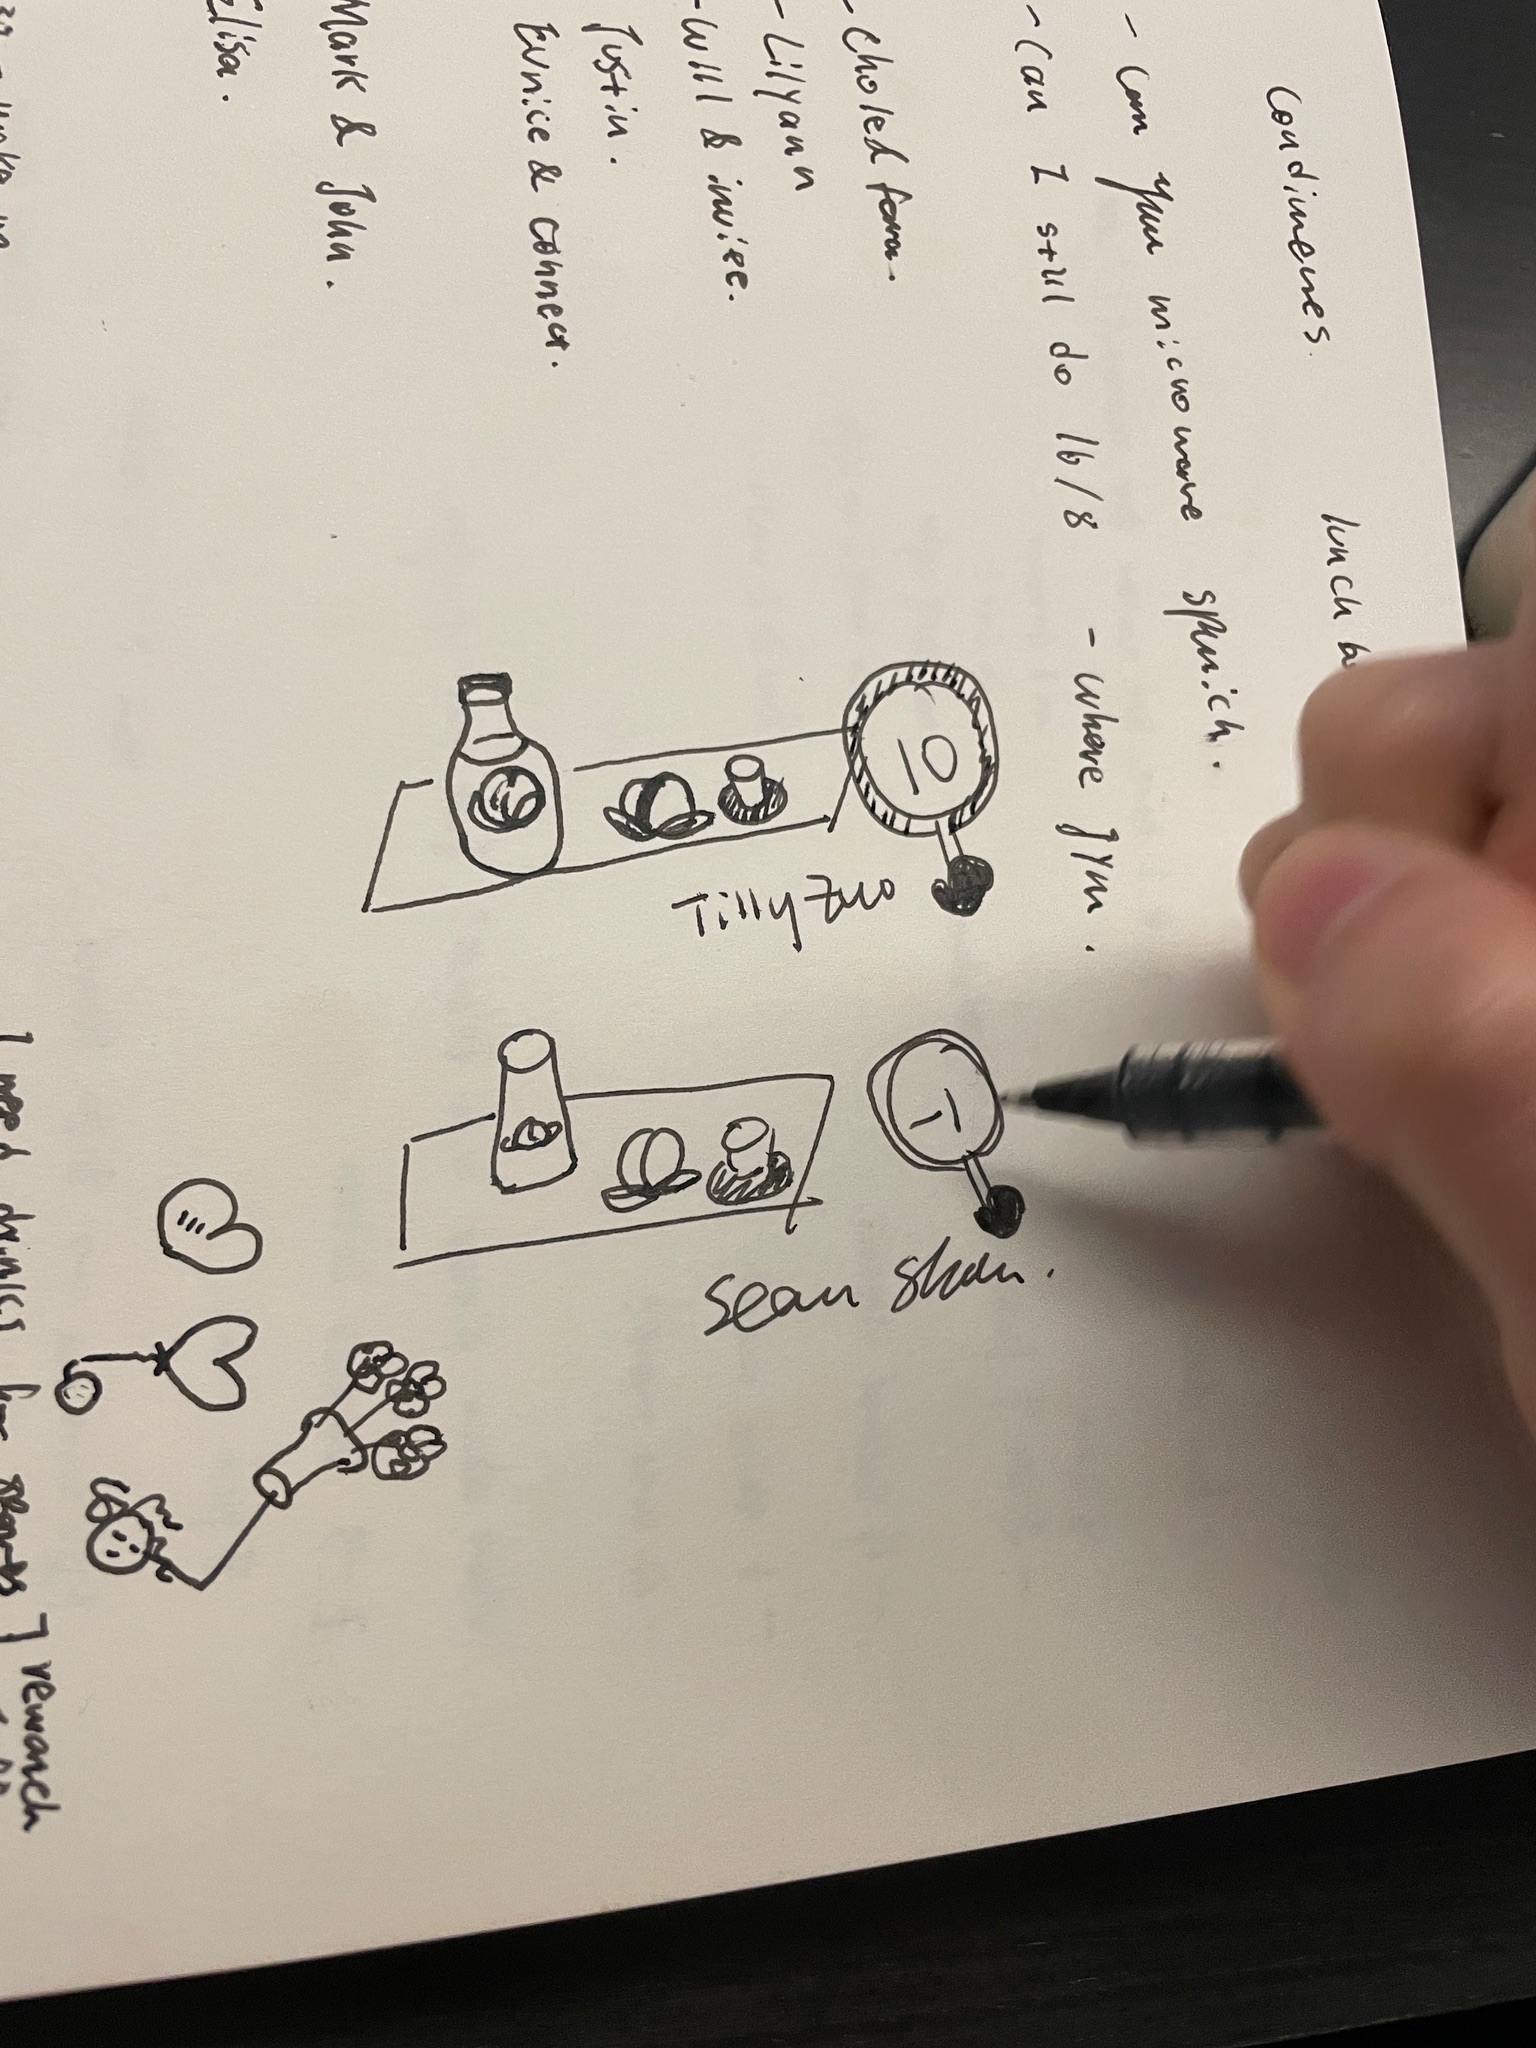 Condimenes. lunch
- Can you microwave spinich.
- Can I still do 16/8 - where gym.
- Lilyann
- Will & invite.
Justin.
Eunice & connect.
Mark & John.
Elisa.
10
Tilly Zuo
Sean Shan.
I need drinks for sports ] research